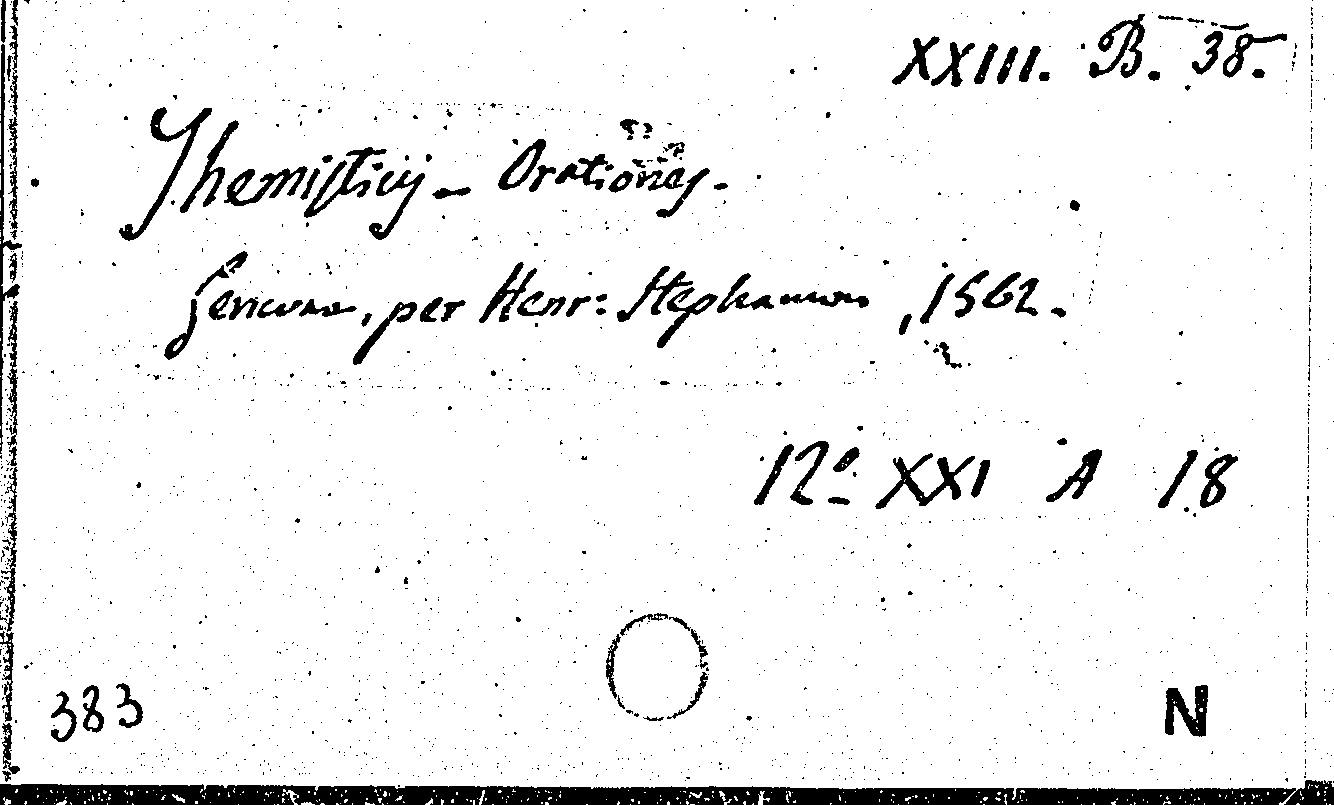 XXIII. B. 38.
Themisticij – Orationes.
per Henr: Stephanum, 1562.
12º XXI A 18
383
N